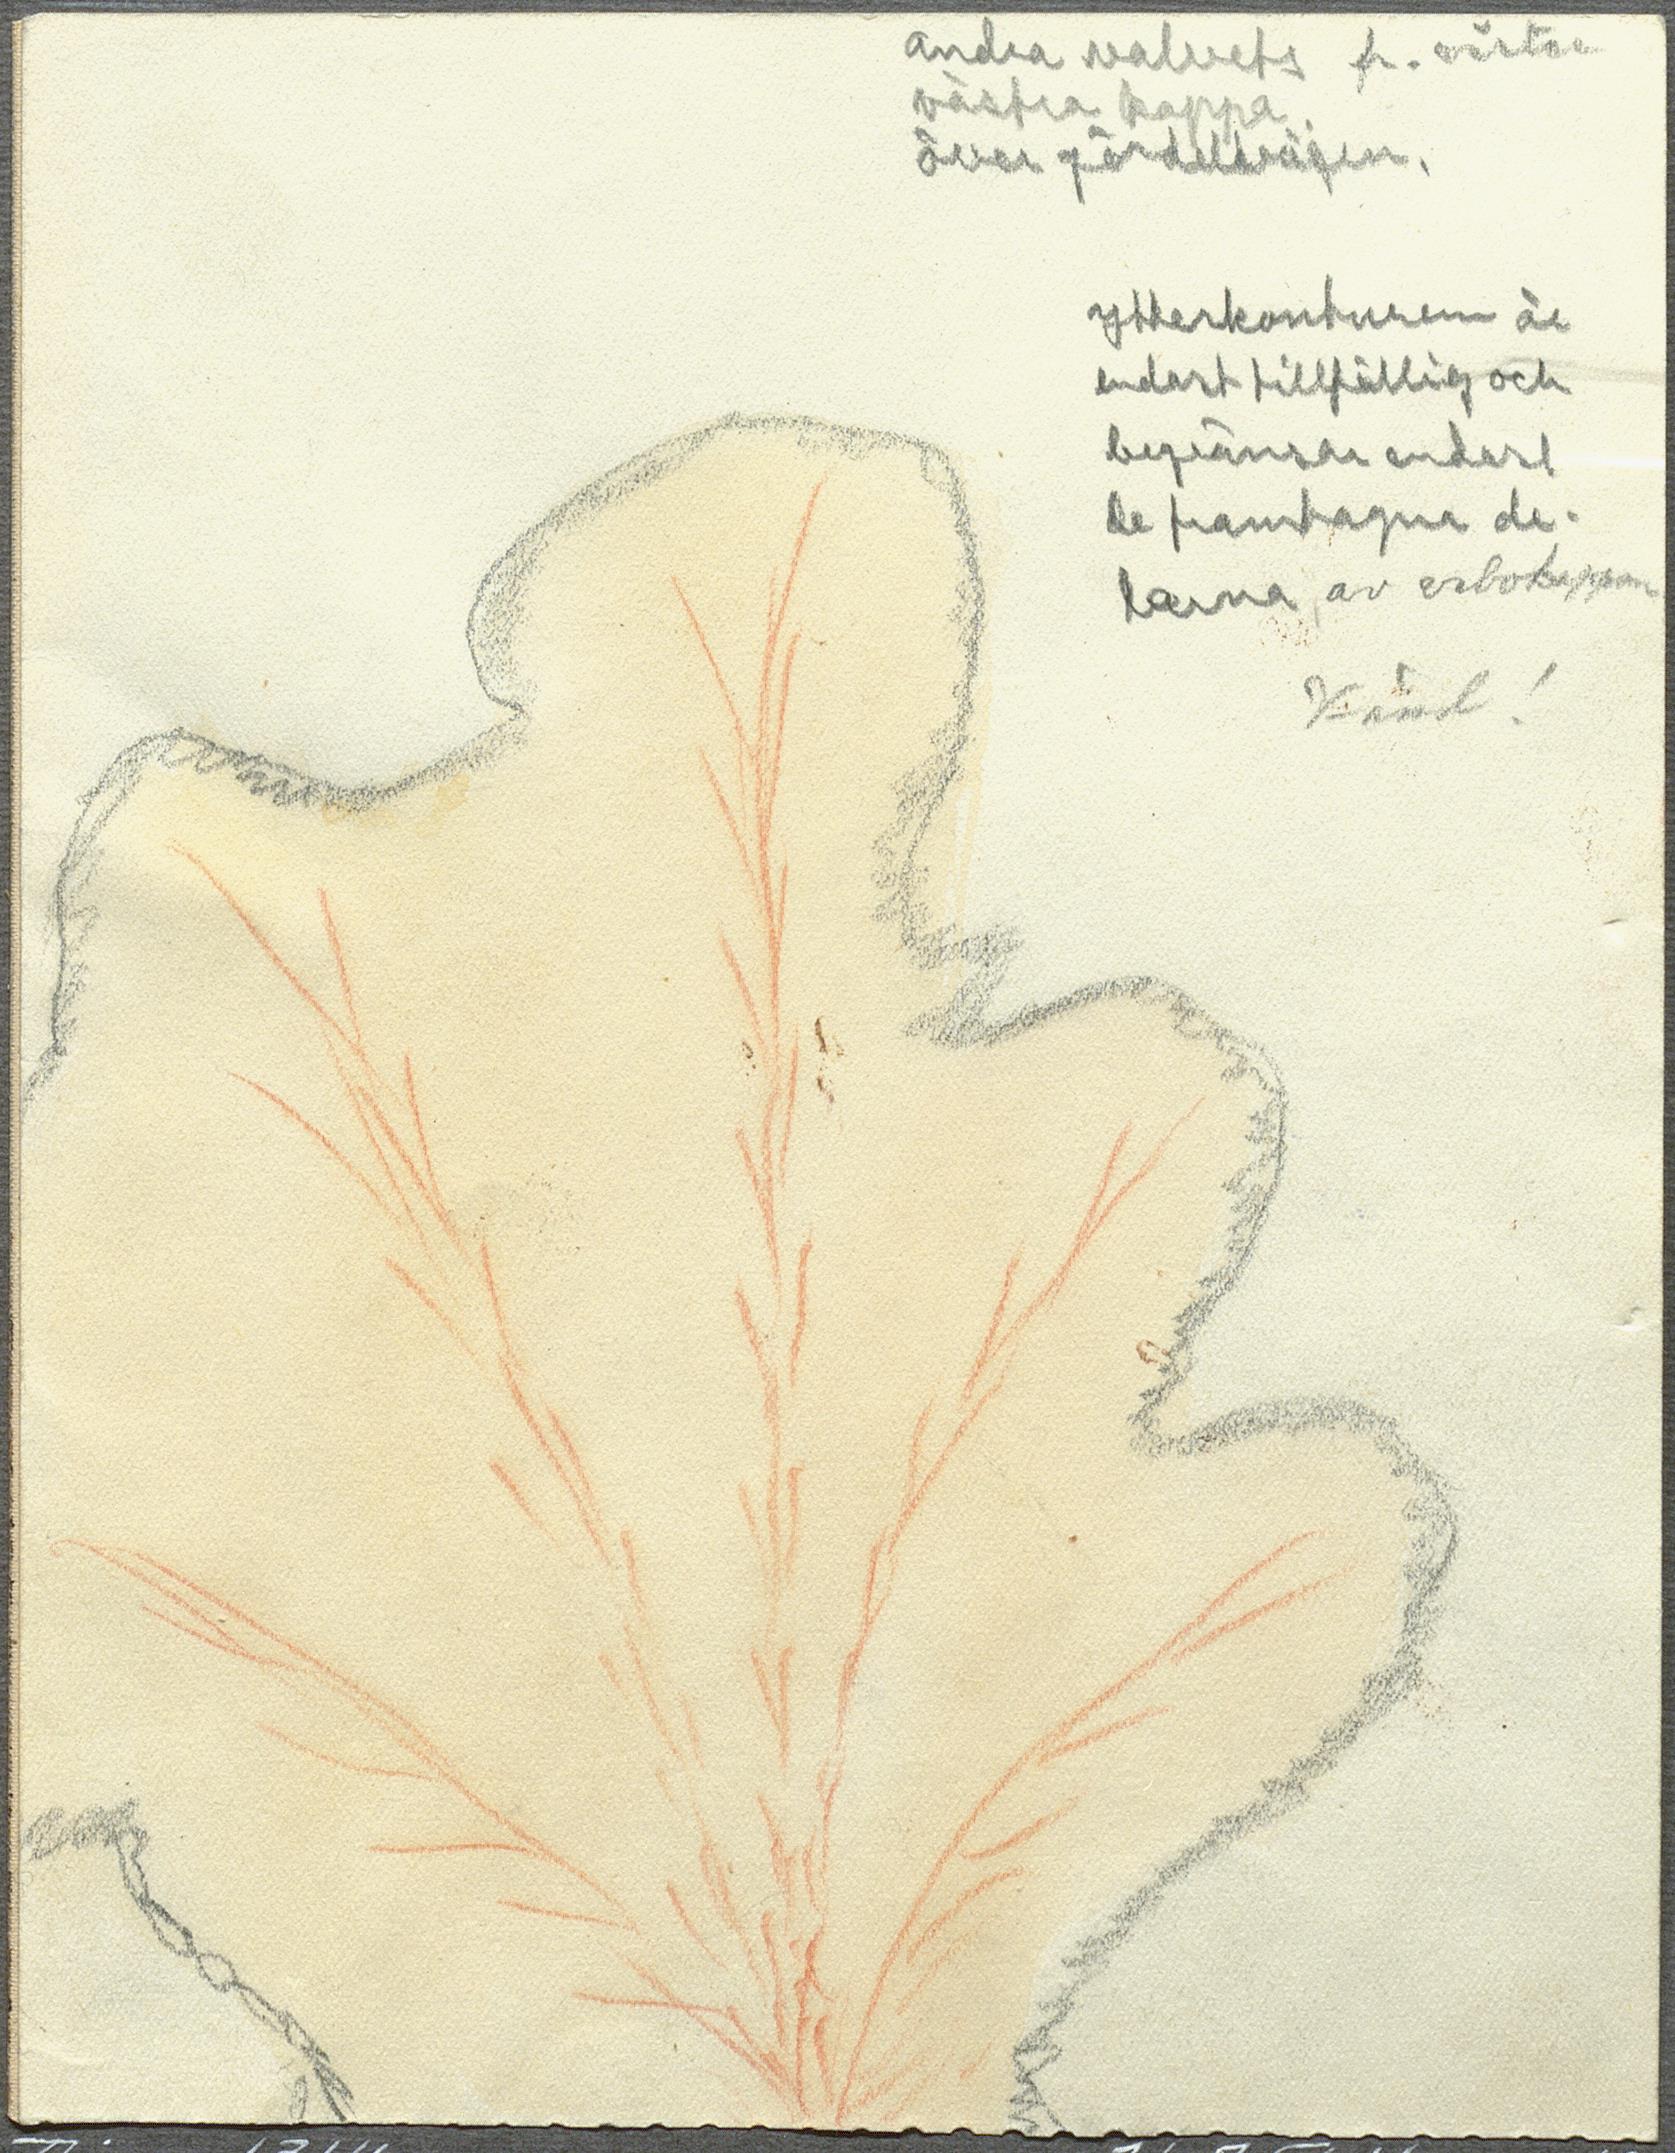 andra valvets fr. väster
västra kappa.
över gördelbågen.
ytterkonturen är
endast tillfällig och
begränsar endast
de framtagna de-
larna av